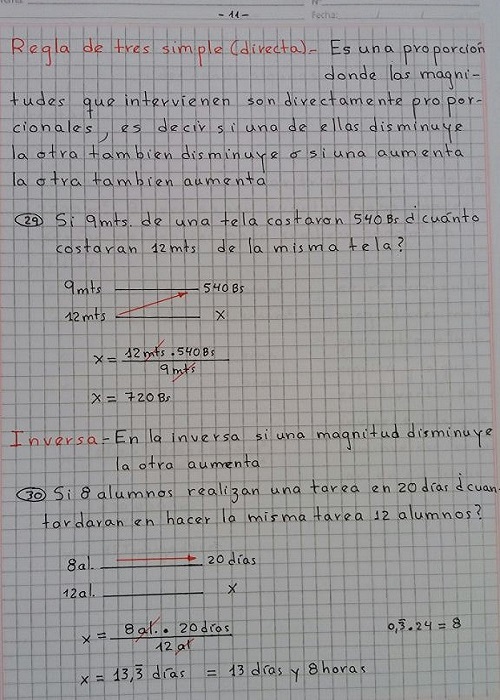 - 11 -
Fecha: / /
Regla de tres simple (directa)- Es una proporcion
donde las magni-
tudes que intervienen son directamente propor-
cionales, es decir si una de ellas disminuye
la otra tambien disminuye o si una aumenta
la otra tambien aumenta
29 Si 9mts. de una tela costaron 540 Bs ¿cuánto
costaran 12mts de la misma tela?
9mts 540 Bs
12mts x
x = 12mts . 540 Bs
9mts
x = 720 Bs
Inversa - En la inversa si una magnitud disminuye
la otra aumenta
30 Si 8 alumnos realizan una tarea en 20 días ¿cuan-
tardaran en hacer la misma tarea 12 alumnos?
8al. 20 días
12al. x
x = 8al. . 20 días
12al
0,3̅ . 24 = 8
x = 13,3̅ días = 13 días y 8 horas